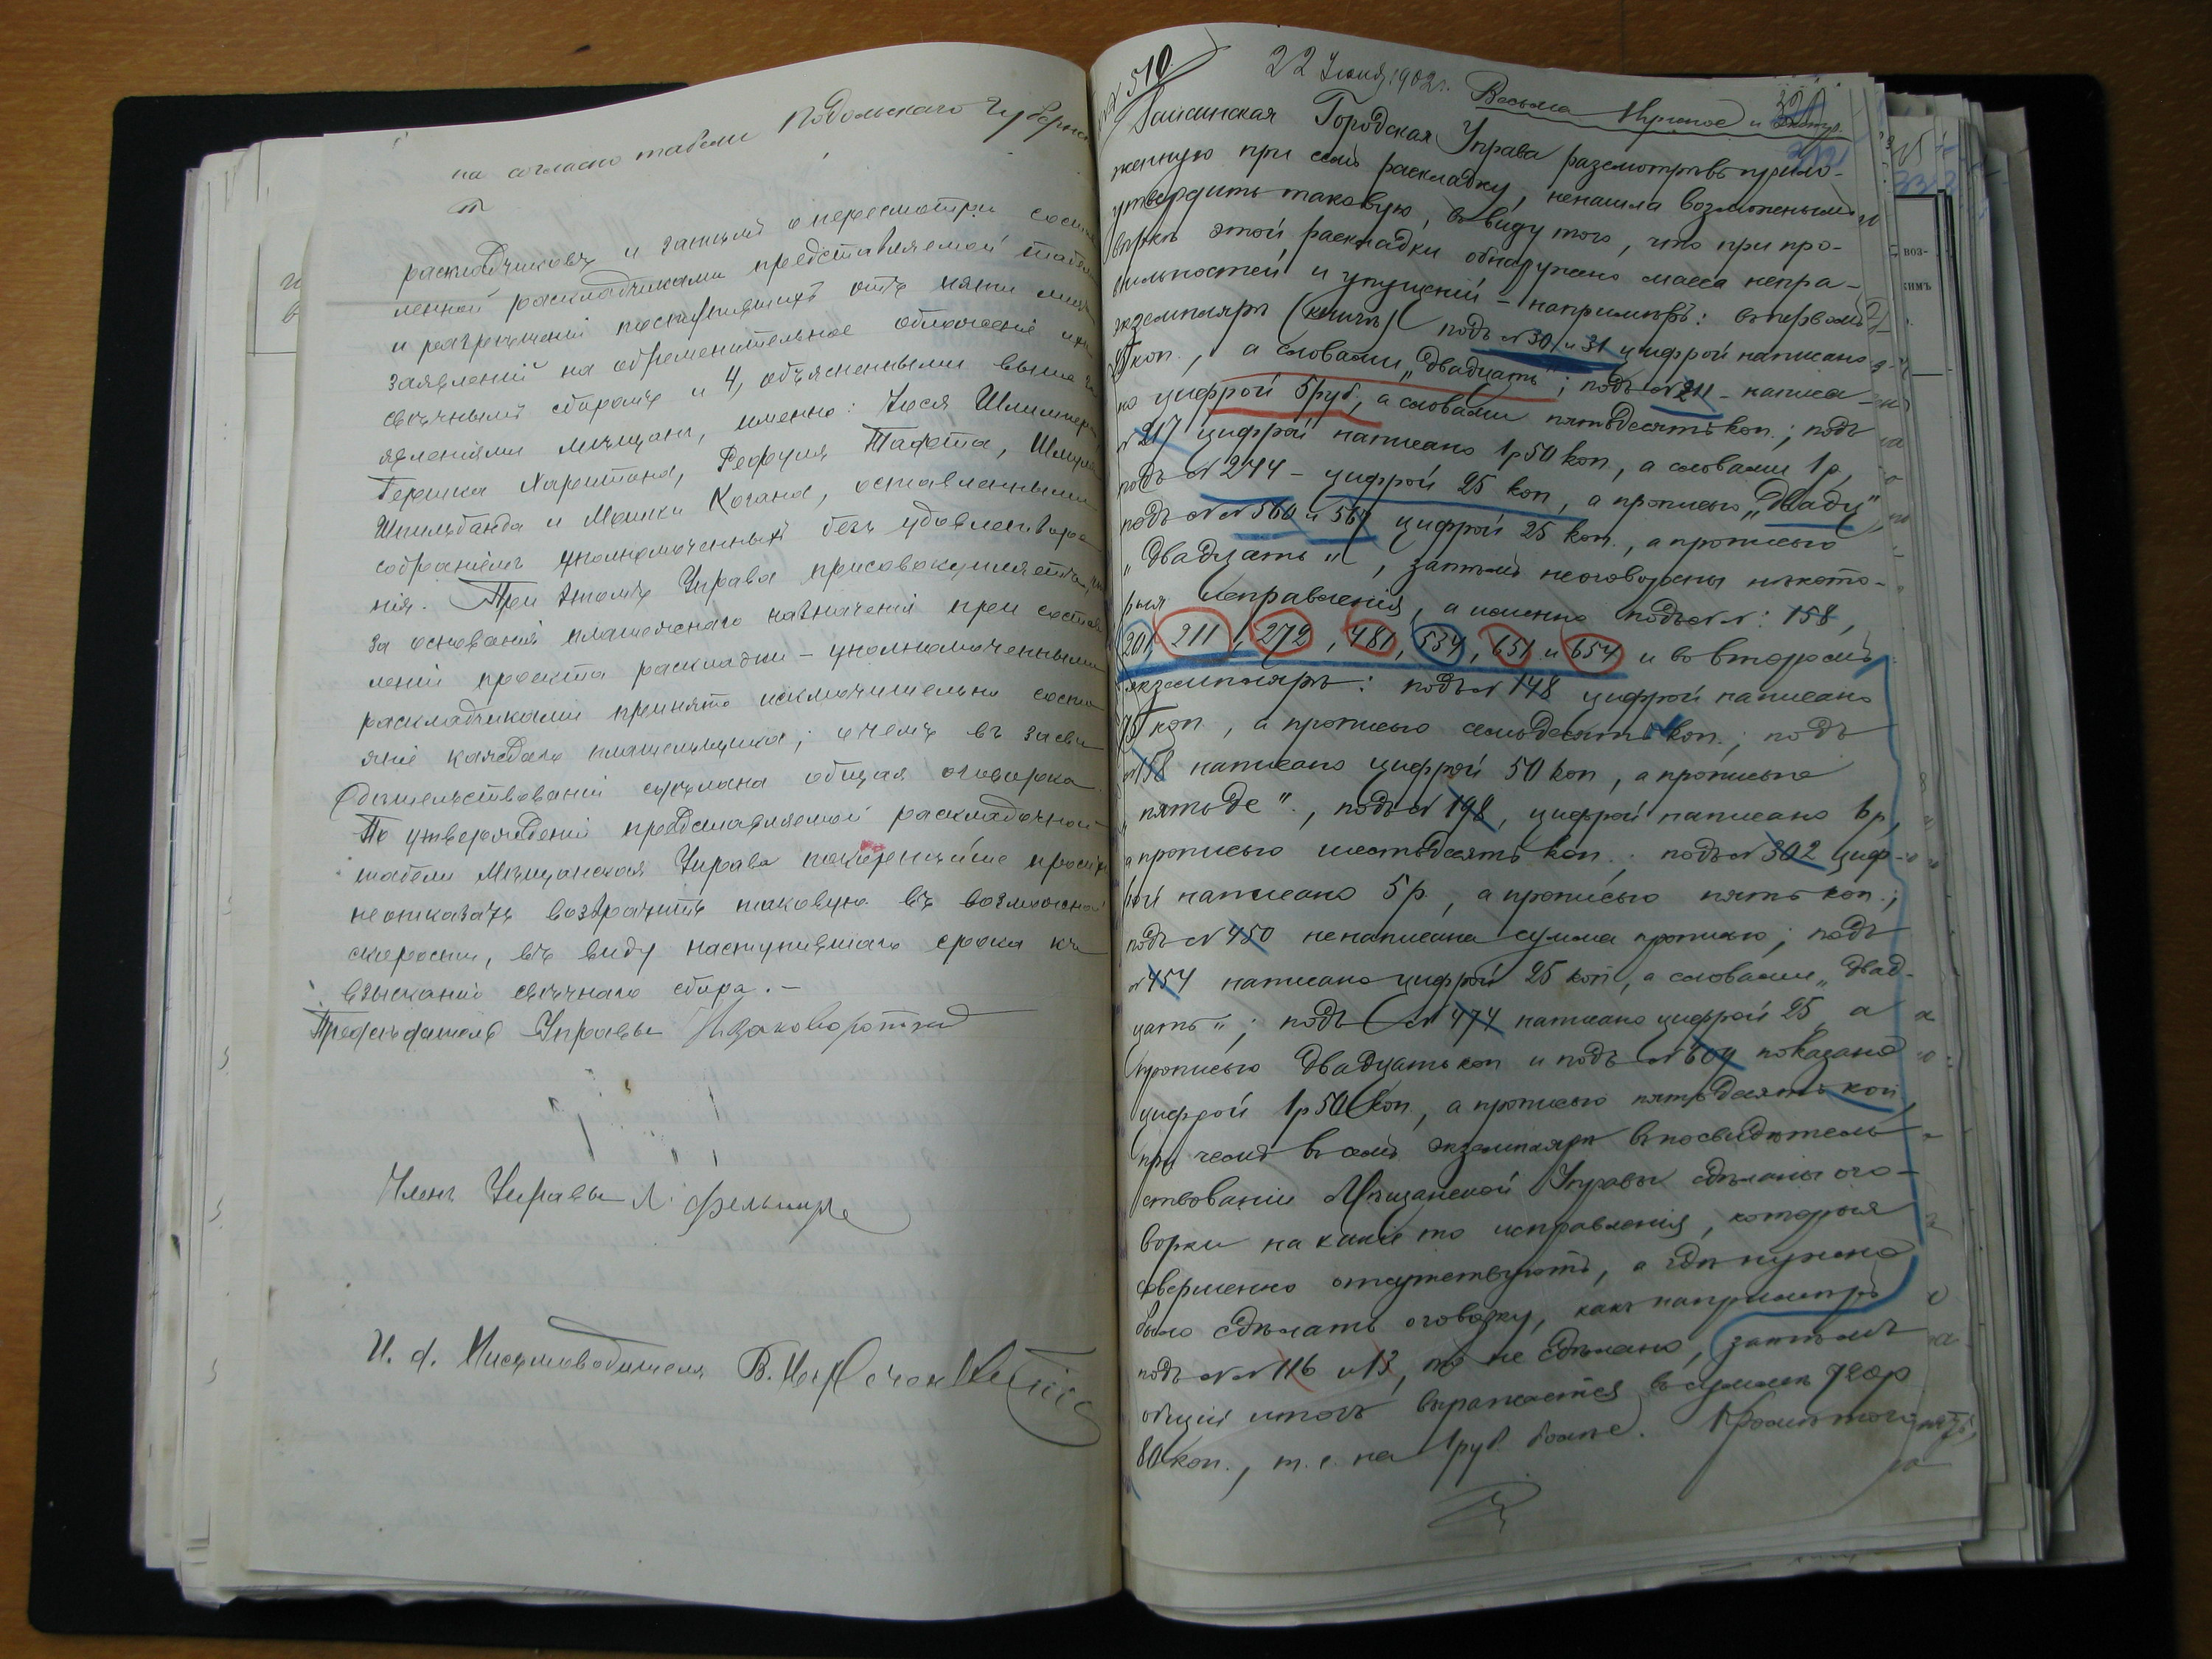 на согласно табели Подольскаго Губерна
раскладчиковъ и затѣмъ о пересмотрѣ состав
ленной раскладчиками представляемой табели
и разрѣшеніи поступившихъ отъ мѣщ
заявленій на обременительное обложеніе ихъ
свѣчнымъ сборомъ и 4, объясненными выше за
явленіями мѣщанъ, именно: Іося
Гершка Харитона, Рефуля Тафта, Шмуля
и Мошки Когана, оставленными
собраніемъ уполномоченныхъ безъ удовлетворе
нія. При этомъ Управа присовокупляетъ, что
за основанія платежнаго назначенія при состав
леніи проекта раскладки – уполномоченными
раскладчиками принято исключительно состо
яніе каждаго плательщика; о чемъ въ засви
дѣтельствованіи сдѣлана общая оговорка.
По утвержденіи представляемой раскладочной
табели Мѣщанская Управа покорнѣйше проситъ
не отказать возвратить таковую въ возможной
скорости, въ виду наступившаго срока къ
взысканію свѣчнаго сбора. –
Предсѣдатель Управы
Членъ Управы Л.
И. д. Письмоводителя В.
№ 510
22 Іюня 1902 г.
Весьма нужное и
Гайсинская Городская Управа разсмотрѣвъ прило-
женную при семъ раскладку, ненашла возможнымъ
утвердить таковую, въ виду того, что при про-
вѣркѣ этой раскладки обнаружено масса непра-
вильностей и упущеній – напримѣръ: въ первомъ
экземплярѣ (книгѣ) подъ № 30 и 31 цифрой написано
25 коп., а словами „двадцать"; подъ № 211 – написа-
но цифрой 5 руб., а словами пятьдесятъ коп.; подъ
№ 217 цифрой написано 1 р 50 коп, а словами 1 р,
подъ № 244 – цифрой 25 коп, а прописью „двадц",
подъ №№ 560 и 567 цифрой 25 коп., а прописью
„двадцать", затѣмъ неоговорены нѣкото-
рыя исправленія, а именно подъ №№: 158,
201, 211, 272, 481, 534, 651 и 654 и во второмъ
экземплярѣ: подъ № 148 цифрой написано
75 коп, а прописью семьдесятъ коп.; подъ
№ 158 написано цифрой 50 коп, а прописью
„пятьде"., подъ № 198, цифрой написано 6 р,
а прописью шестьдесятъ коп.; подъ № 302 циф-
рой написано 5 р., а прописью пять коп.;
подъ № 450 ненаписана сумма прописью; подъ
№ 454 написано цифрой 25 коп, а словами „двад-
цать"; подъ № 474 написано цифрой 25, а
прописью двадцать коп и подъ № 604 показано
цифрой 1 р 50 коп, а прописью пятьдесятъ коп,
при чемъ въ семъ экземплярѣ въ посвидѣтель-
ствованіи Мѣщанской Управы сдѣланы ого-
ворки на какіе то исправленія, которыя
совершенно отсутствуютъ, а гдѣ нужно
было сдѣлать оговорку, какъ напримѣръ
подъ №№ 116 и 13, то не сдѣлано, затѣмъ
общій итогъ выражается въ суммѣ 720 р
80 коп., т. е. на 1 руб. болѣе. Кромѣ того